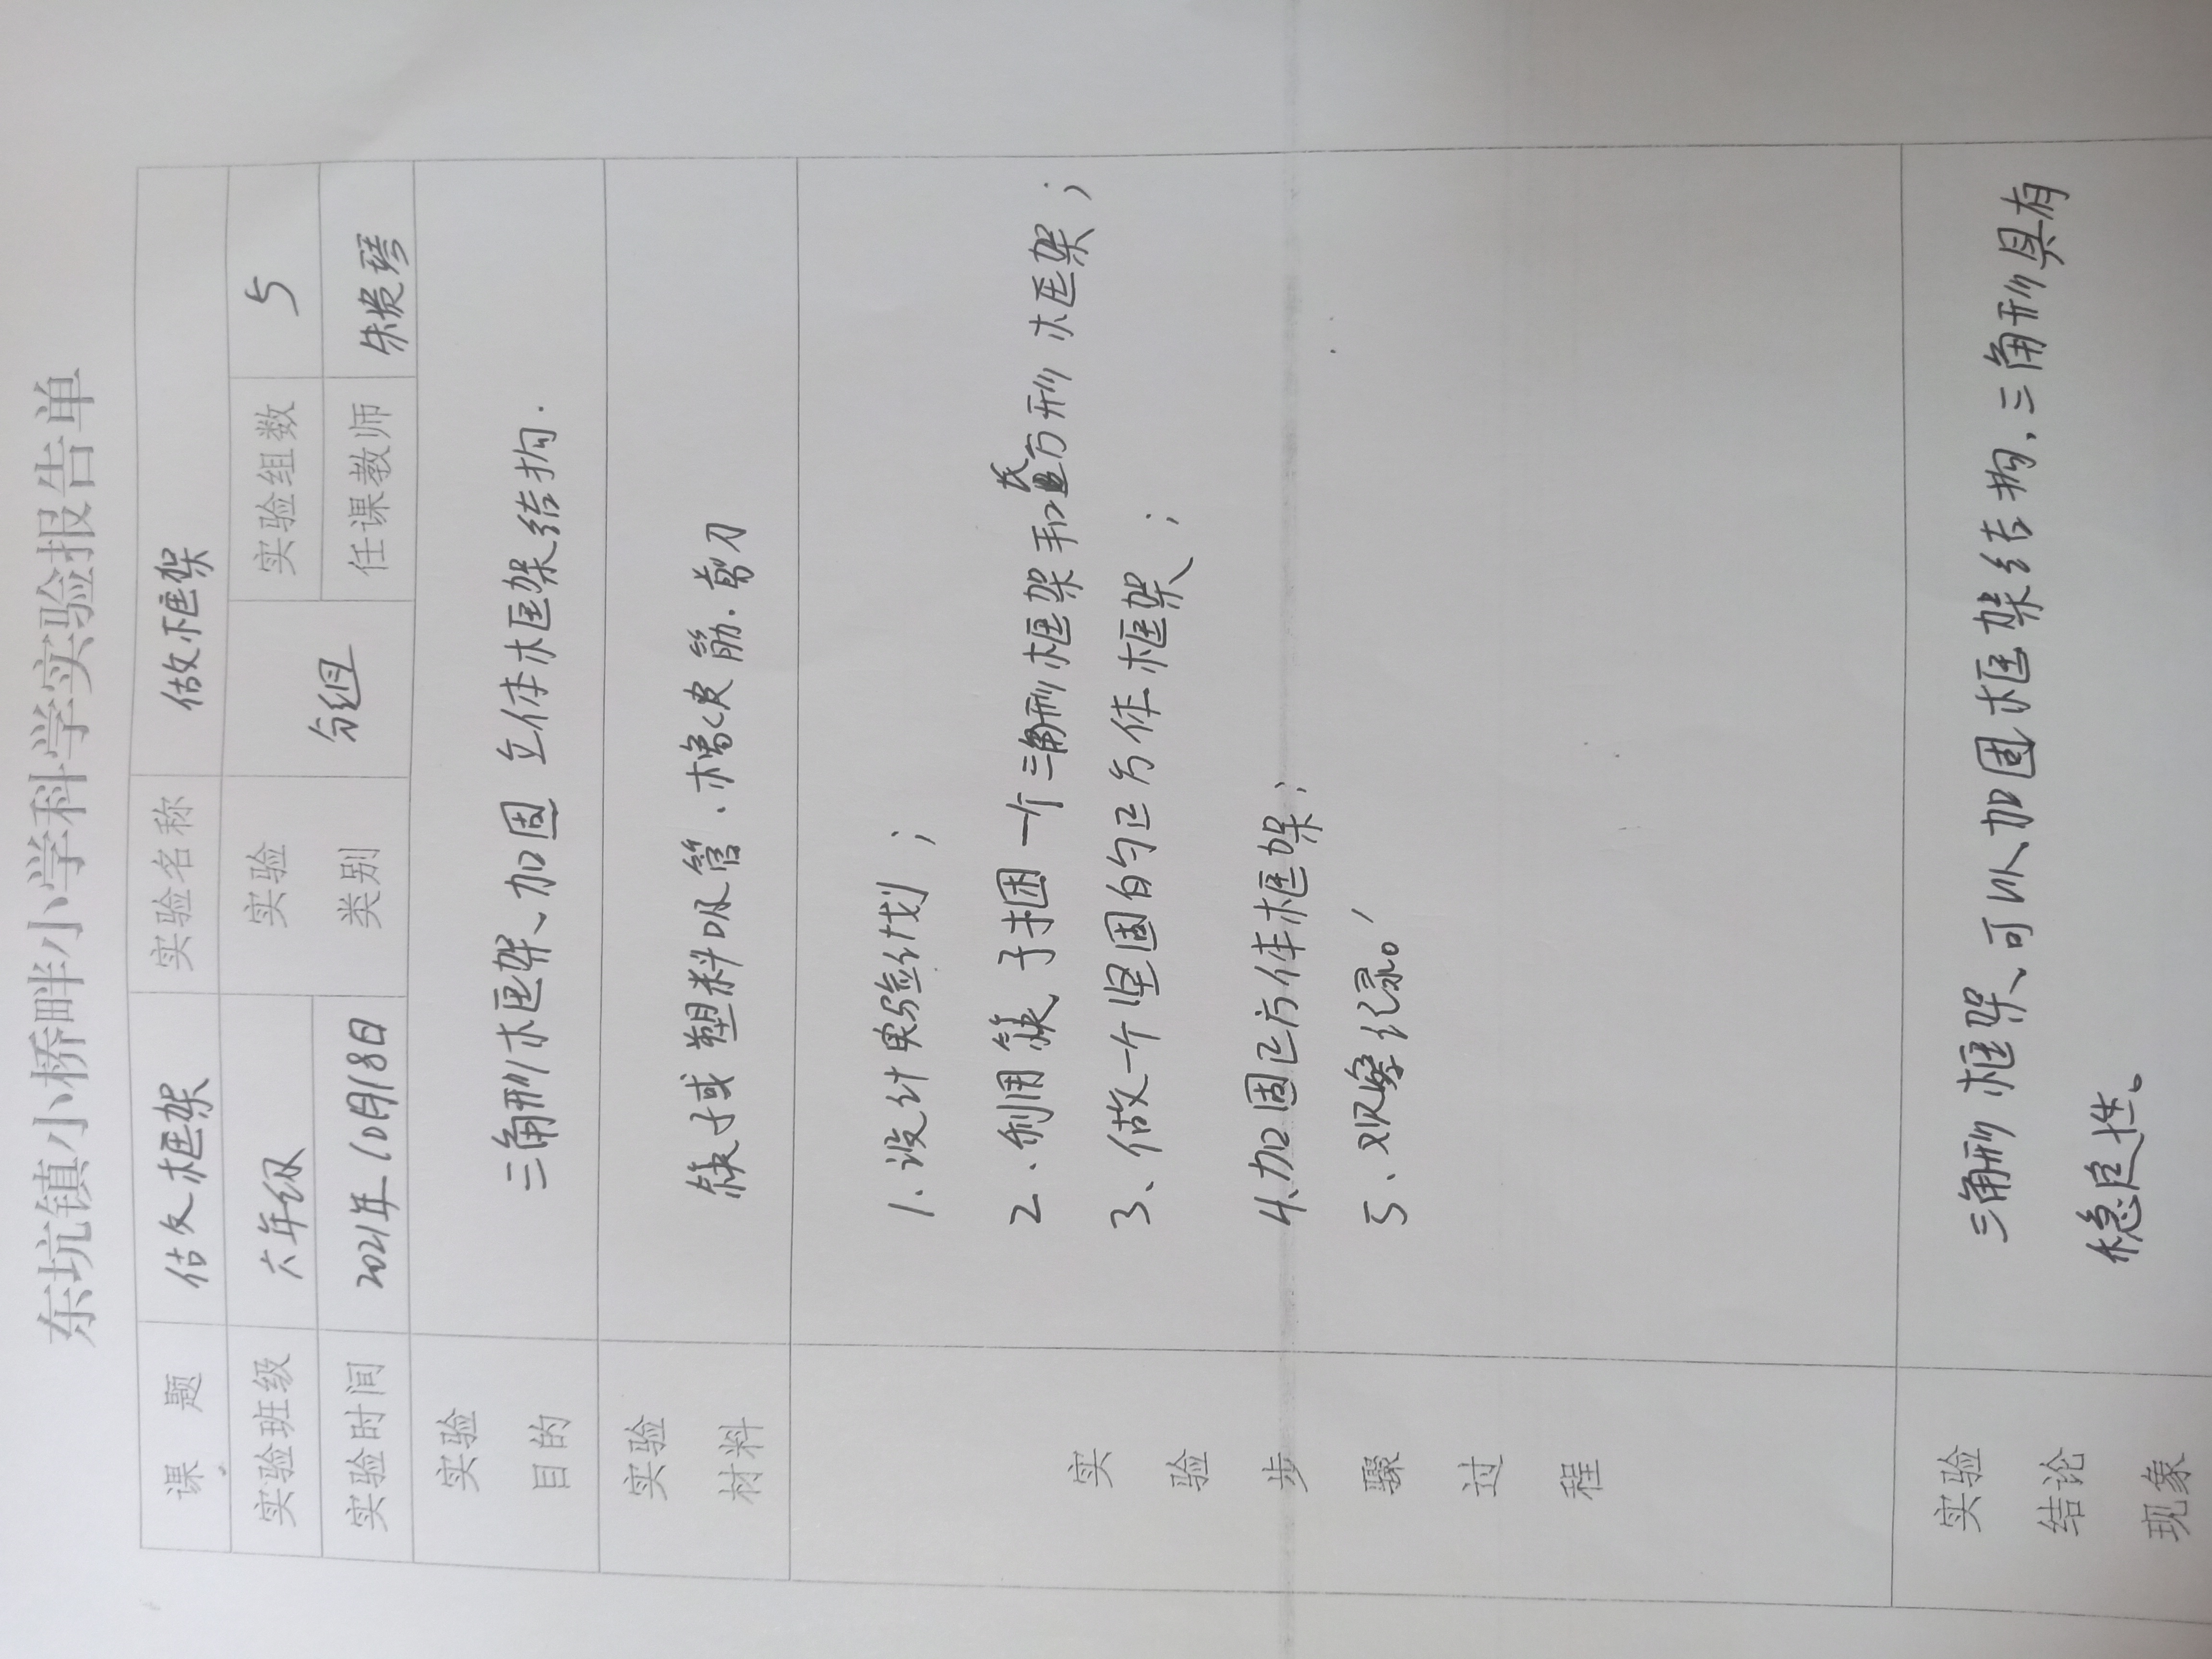 东坑镇小桥畔小学科学实验报告单
课 题 做框架 实验名称 做框架
实验班级 六年级 实验 类别 分组 实验组数 5
实验时间 2021年10月18日 任课教师 朱贵琴
实验
目的
三角形框架、加固 立体框架结构.
实验
材料
筷子或塑料吸管、橡皮筋.剪刀
实
验
步
骤
过
程
1.设计实验计划；
2.利用筷子捆一个三角形框架和长方形框架；
3、做一个坚固的正方体框架；
4.加固正方体框架；
5、观察纪录。
实验
结论
现象
三角形框架、可以加固框架结构.三角形具有
稳定性。